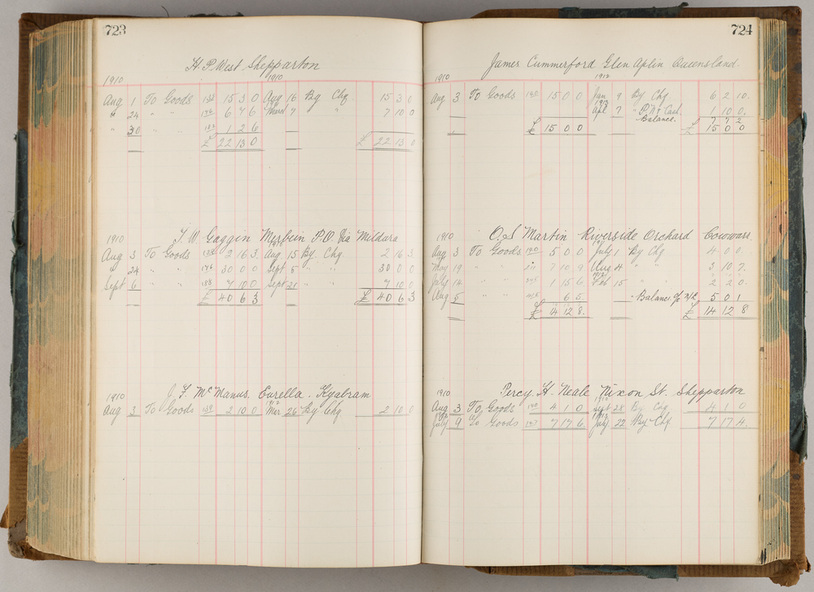 723
H. P. West Shepparton
1910 1910
Aug 1 To Goods 15 3 0 Aug 16 By Chq 15 3 0
" 24 " " 6 7 6 7 " 7 10 0
" 30 1 2 6
£ 22 13 0 £ 22 13 0
Goggin Merbein P.O. Via Mildura
1910
Aug 3 To Goods 2 16 3 Aug 15 By Chq 2 16 3
" 24 " " 30 0 0 Sept 5 " 30 0 0
Sept 6 " " 7 10 0 Sept " 7 10 0
£ 40 6 3 £ 40 6 3
J. F. McManus. Eurella. Kyabram
1910
Aug 3 To Goods 2 10 0 26 By Chq 2 10 0
724
James Cummerford Glen Aplin Queensland
1910 1910
Aug 3 To Goods 15 0 0 Jan 9 By Chq 6 2 10
Apl 7 " Cash 1 10 0
Balance. 7 7 2
£ 15 0 0 £ 15 0 0
O. S. Martin Riverside Orchard
1910
Aug 3 To Goods 5 0 0 July 1 By Chq 4 0 0
19 " " 7 10 9 Aug 4 " 3 10 7
July 14 " " 1 15 6 Feb 15 " 2 2 0
Aug 5 " " 6 5 " Balance 5 0 1
£ 14 12 8 £ 14 12 8
Percy H. Neale Nixon St. Shepparton
1910
Aug 3 To Goods 4 1 0 Sept 28 By Chq 4 1 0
July 9 To Goods 137 7 17 6 July 22 By Chq 7 17 4